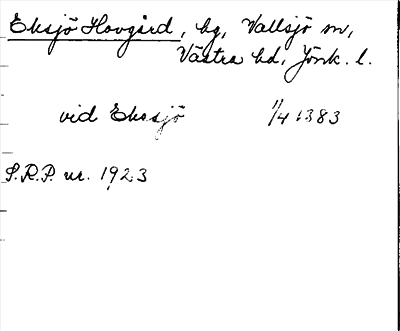 Eksjö Hovgård, bg, Vallsjö sn,
Västra hd, Jönk. l.
vid Ekesjö 1/4 1383
S.R.P. nr. 1923